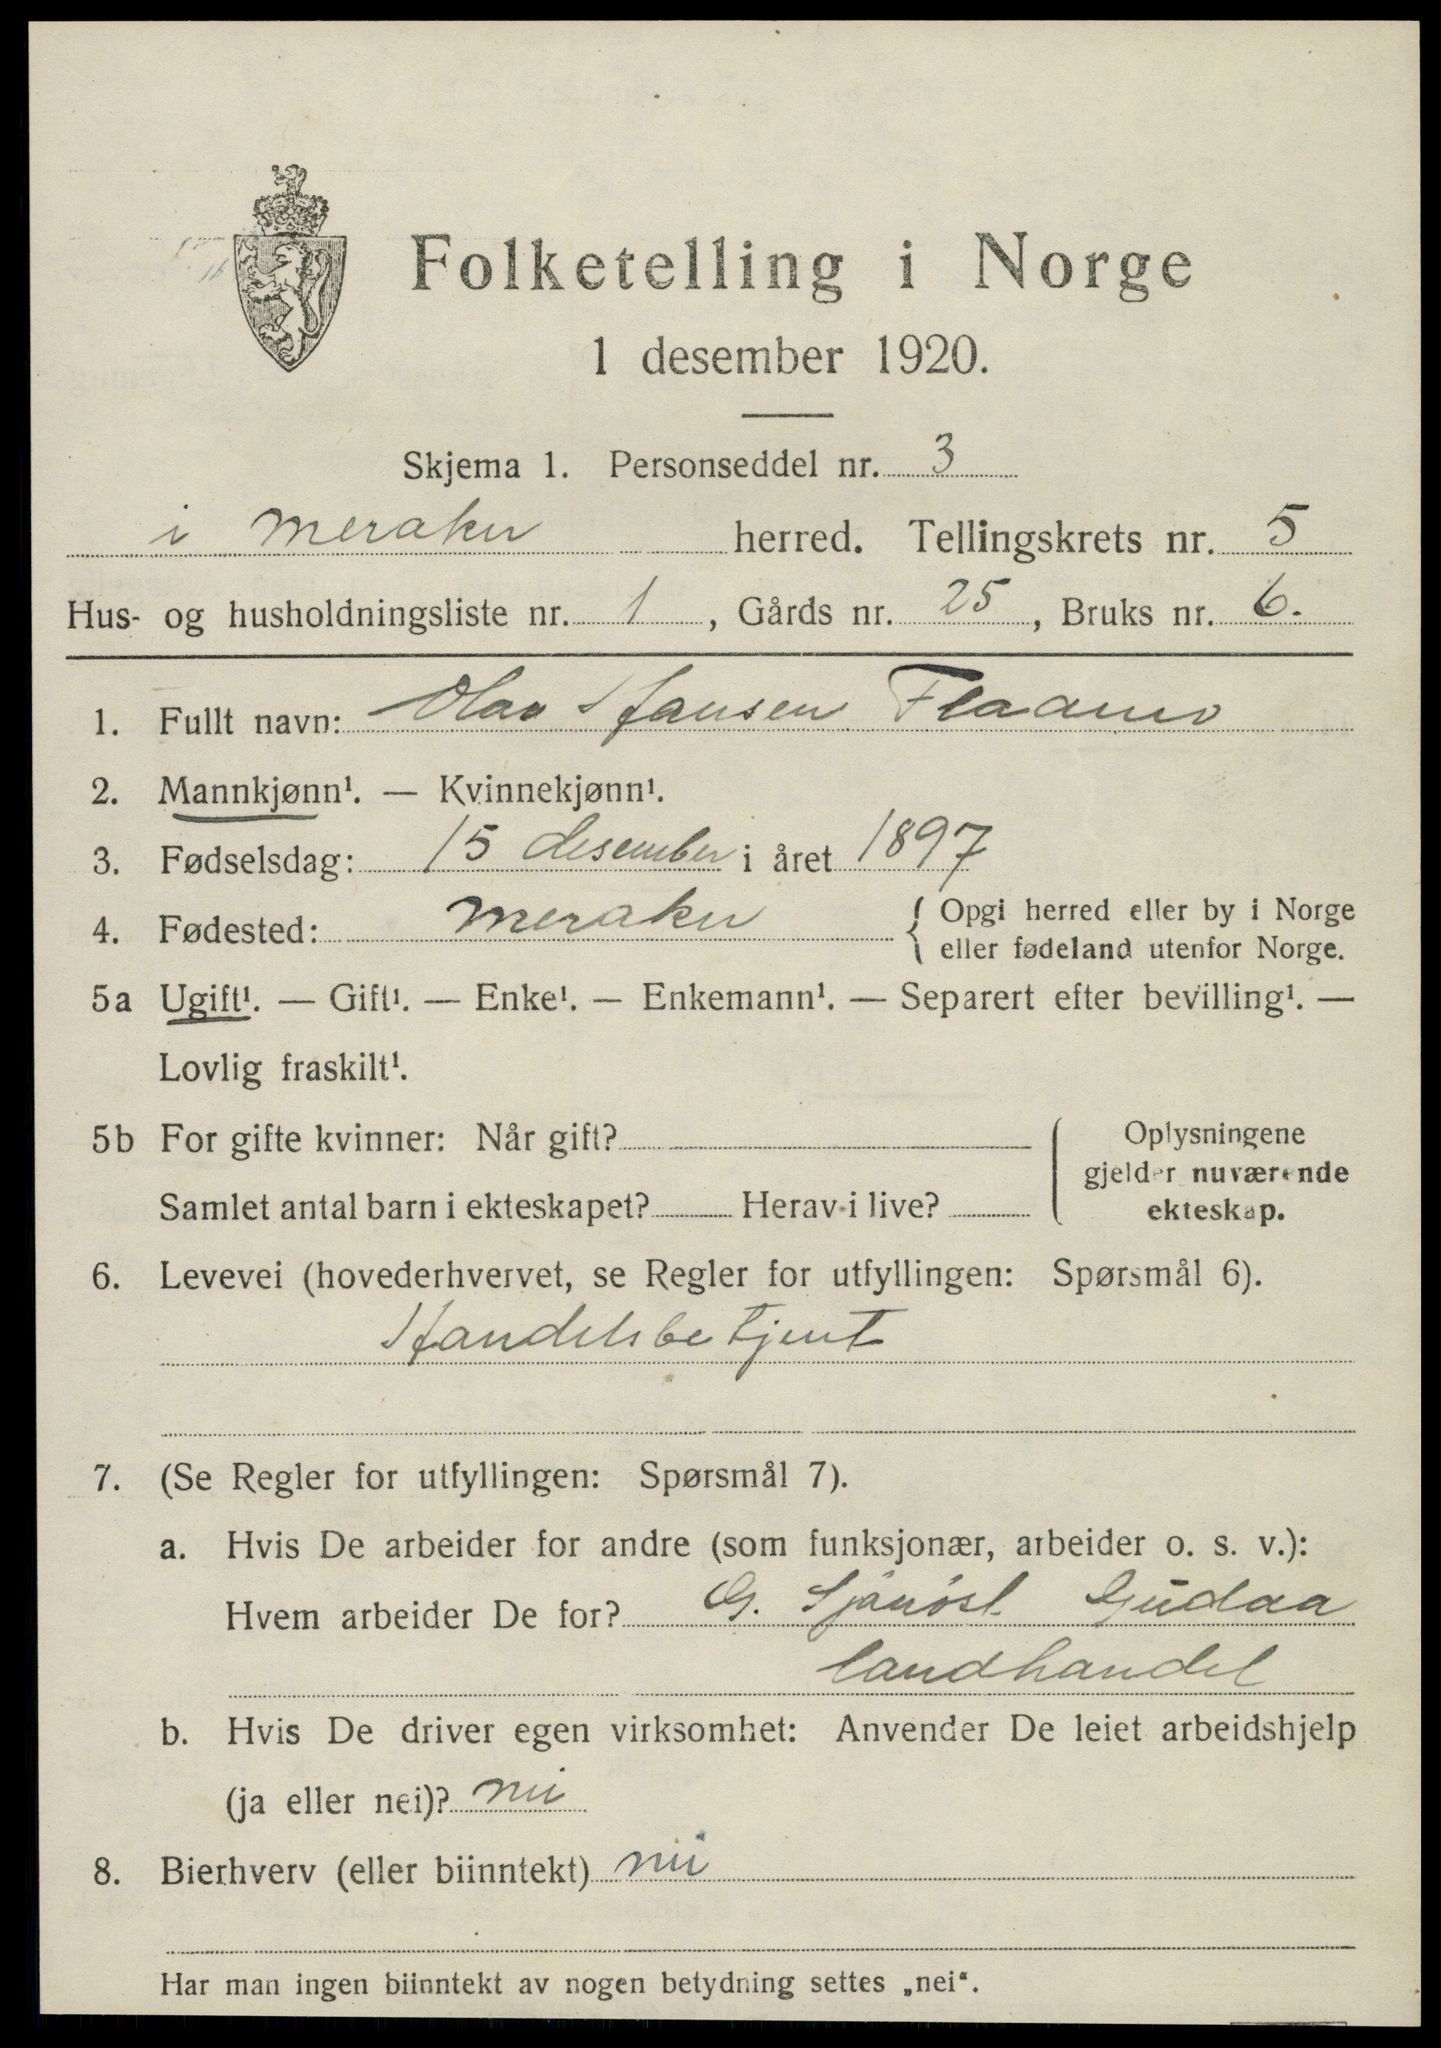 Folketelling i Norge
1 desember 1920.
Skjema 1. Personseddel nr. 3
i Meraker herred. Tellingskrets nr. 5
Hus- og husholdningsliste nr. 1, Gårds nr. 25, Bruks nr. 6.
1. Fullt navn: Olav Hansen Flaamo
2. Mannkjønn¹. — Kvinnekjønn¹.
3. Fødselsdag: 15 desember i året 1897
4. Fødested: Meraker { Opgi herred eller by i Norge
eller fødeland utenfor Norge.
5a Ugift¹. — Gift¹. — Enke¹. — Enkemann¹. — Separert efter bevilling¹. —
Lovlig fraskilt¹.
5b For gifte kvinner: Når gift?
Samlet antal barn i ekteskapet? Herav i live?
Oplysningene
gjelder nuværende
ekteskap.
6. Levevei (hovederhvervet, se Regler for utfyllingen: Spørsmål 6).
Handelsbetjent
7. (Se Regler for utfyllingen: Spørsmål 7).
a. Hvis De arbeider for andre (som funksjonær, arbeider o. s. v.):
Hvem arbeider De for? G. Gudaa
landhandel
b. Hvis De driver egen virksomhet: Anvender De leiet arbeidshjelp
(ja eller nei)? nei
8. Bierhverv (eller biinntekt) nei
Har man ingen biinntekt av nogen betydning settes „nei“.